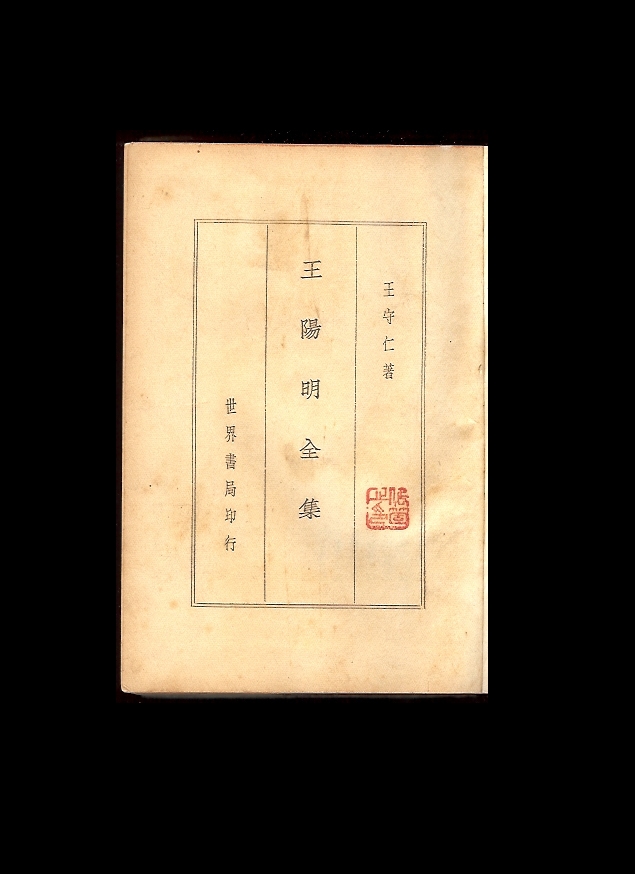 王守仁著
王陽明全集
世界書局印行